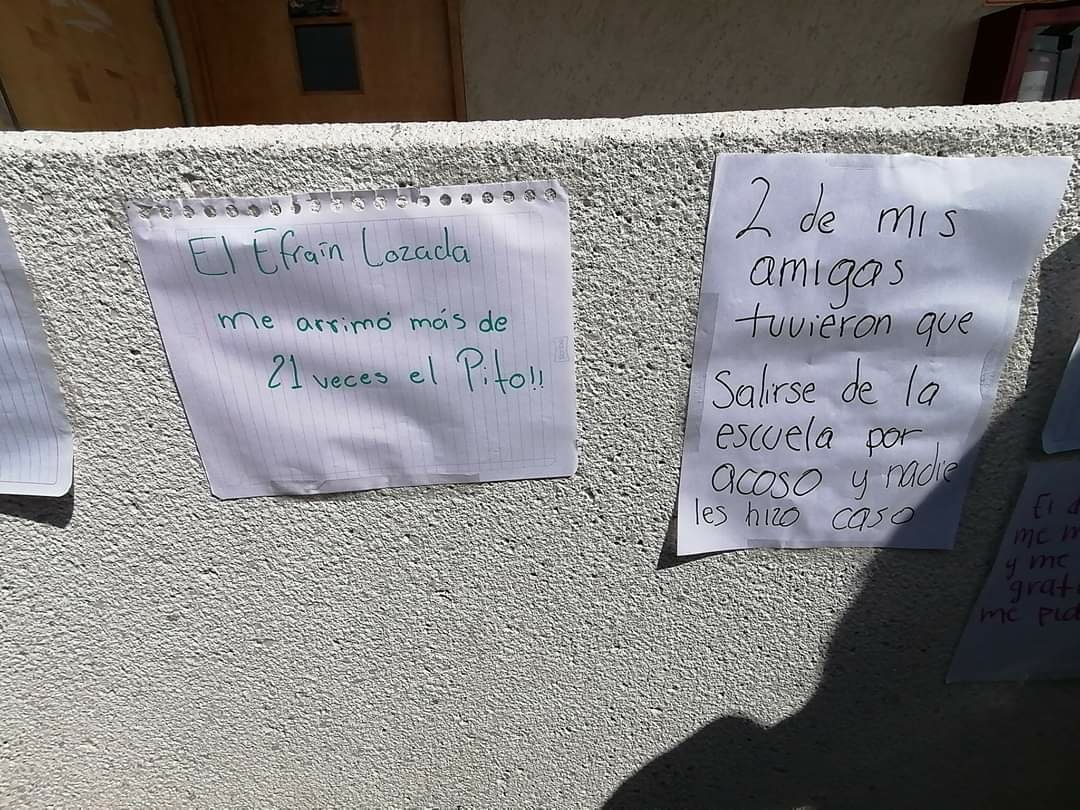 El Efraín Lozada
me arrimó más de
21 veces el Pito!!
2 de mis
amigas
tuvieron que
Salirse de la
escuela por
acoso y nadie
les hizo caso
El
me
y me
me